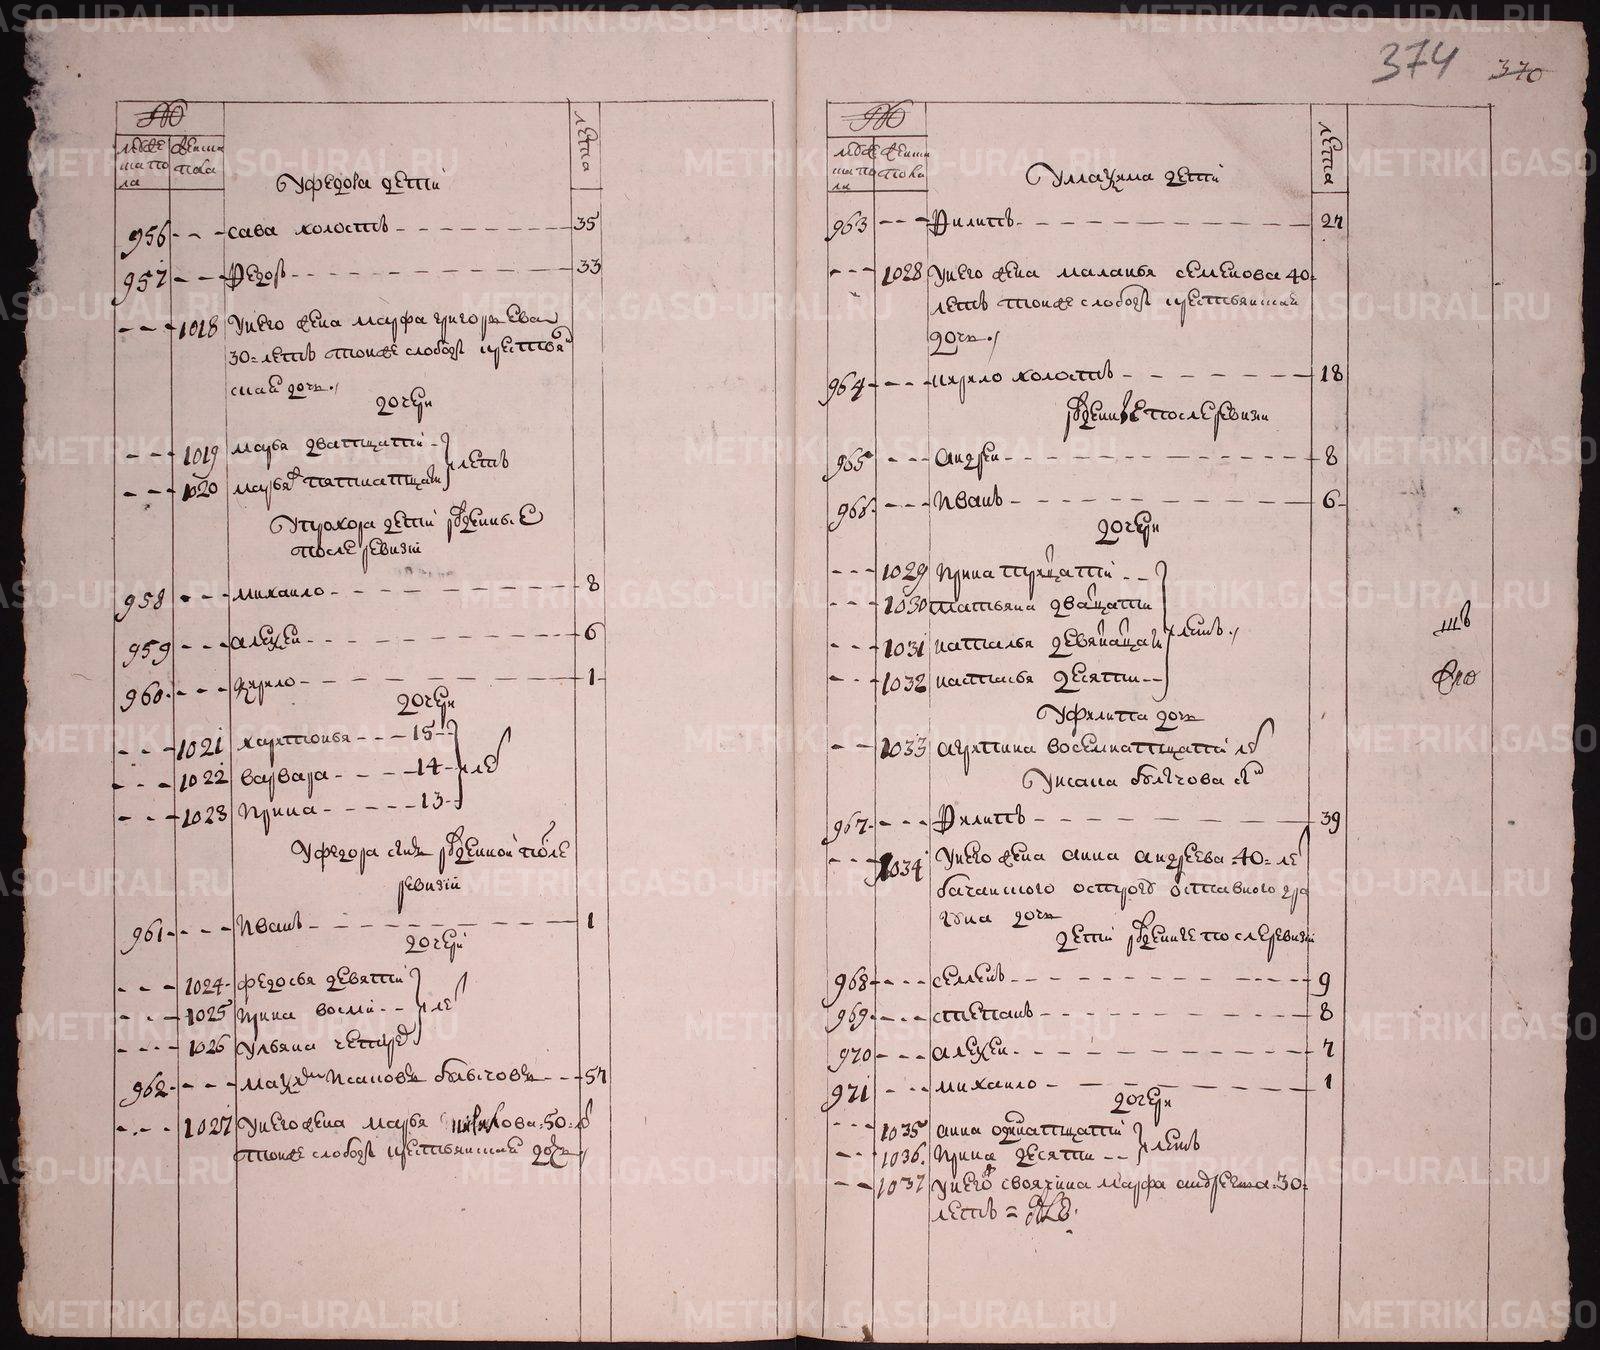 374 370
№
мужеска пола
женска пола
лета
У федора дети
956 сава холостъ 35
957 Федоръ 33
1018 У него жена марфа григорьева
30 летъ тоиже слободы крестьян
скаи дочь
дочери
1019 марья дватцати
1020 марья пятнатцати летъ
У прохора дети рожденные
после ревизи
958 михаило 8
959 алексеи 6
960 кирило 1
дочери
1021 харитонья 15
1022 варвара 14 ле
1023 ирина 13
У федора сынъ рожденнои после
ревизи
961 иванъ 1
дочери
1024 федосья девяти
1025 ирина восми ле
1026 ульяна четыре
962 маξимъ исаковъ сынъ 57
1027 У него жена марья 50 ле
тоиже слободы крестьянскаи дочь
№
мужеска пола
женска пола
лета
У маξима дети
963 Филипъ 27
1028 У него жена маланья семенова 40
летъ тоиже слободы крестьянскаи
дочь
964 кирило холостъ 18
рожденные после ревизи
965 андреи 8
966 иванъ 6
дочери
1029 ирина тритцати
1030 татьяна дватцати
1031 наталья девятнатцати летъ
1032 настасья десяти
У филипа дочь
1033 агрипина восемнатцати ле
У исака сынъ
967 Филипъ 39
1034 У него жена анна андреева 40 ле
острогу отставного дра
гуна дочь
дети рожденные после ревизи
968 семенъ 9
969 степанъ 8
970 алексеи 7
971 михаило 1
дочери
1035 анна одинатцати
1036 ирина десяти летъ
1037 У него своячина марфа андреева 30
летъ